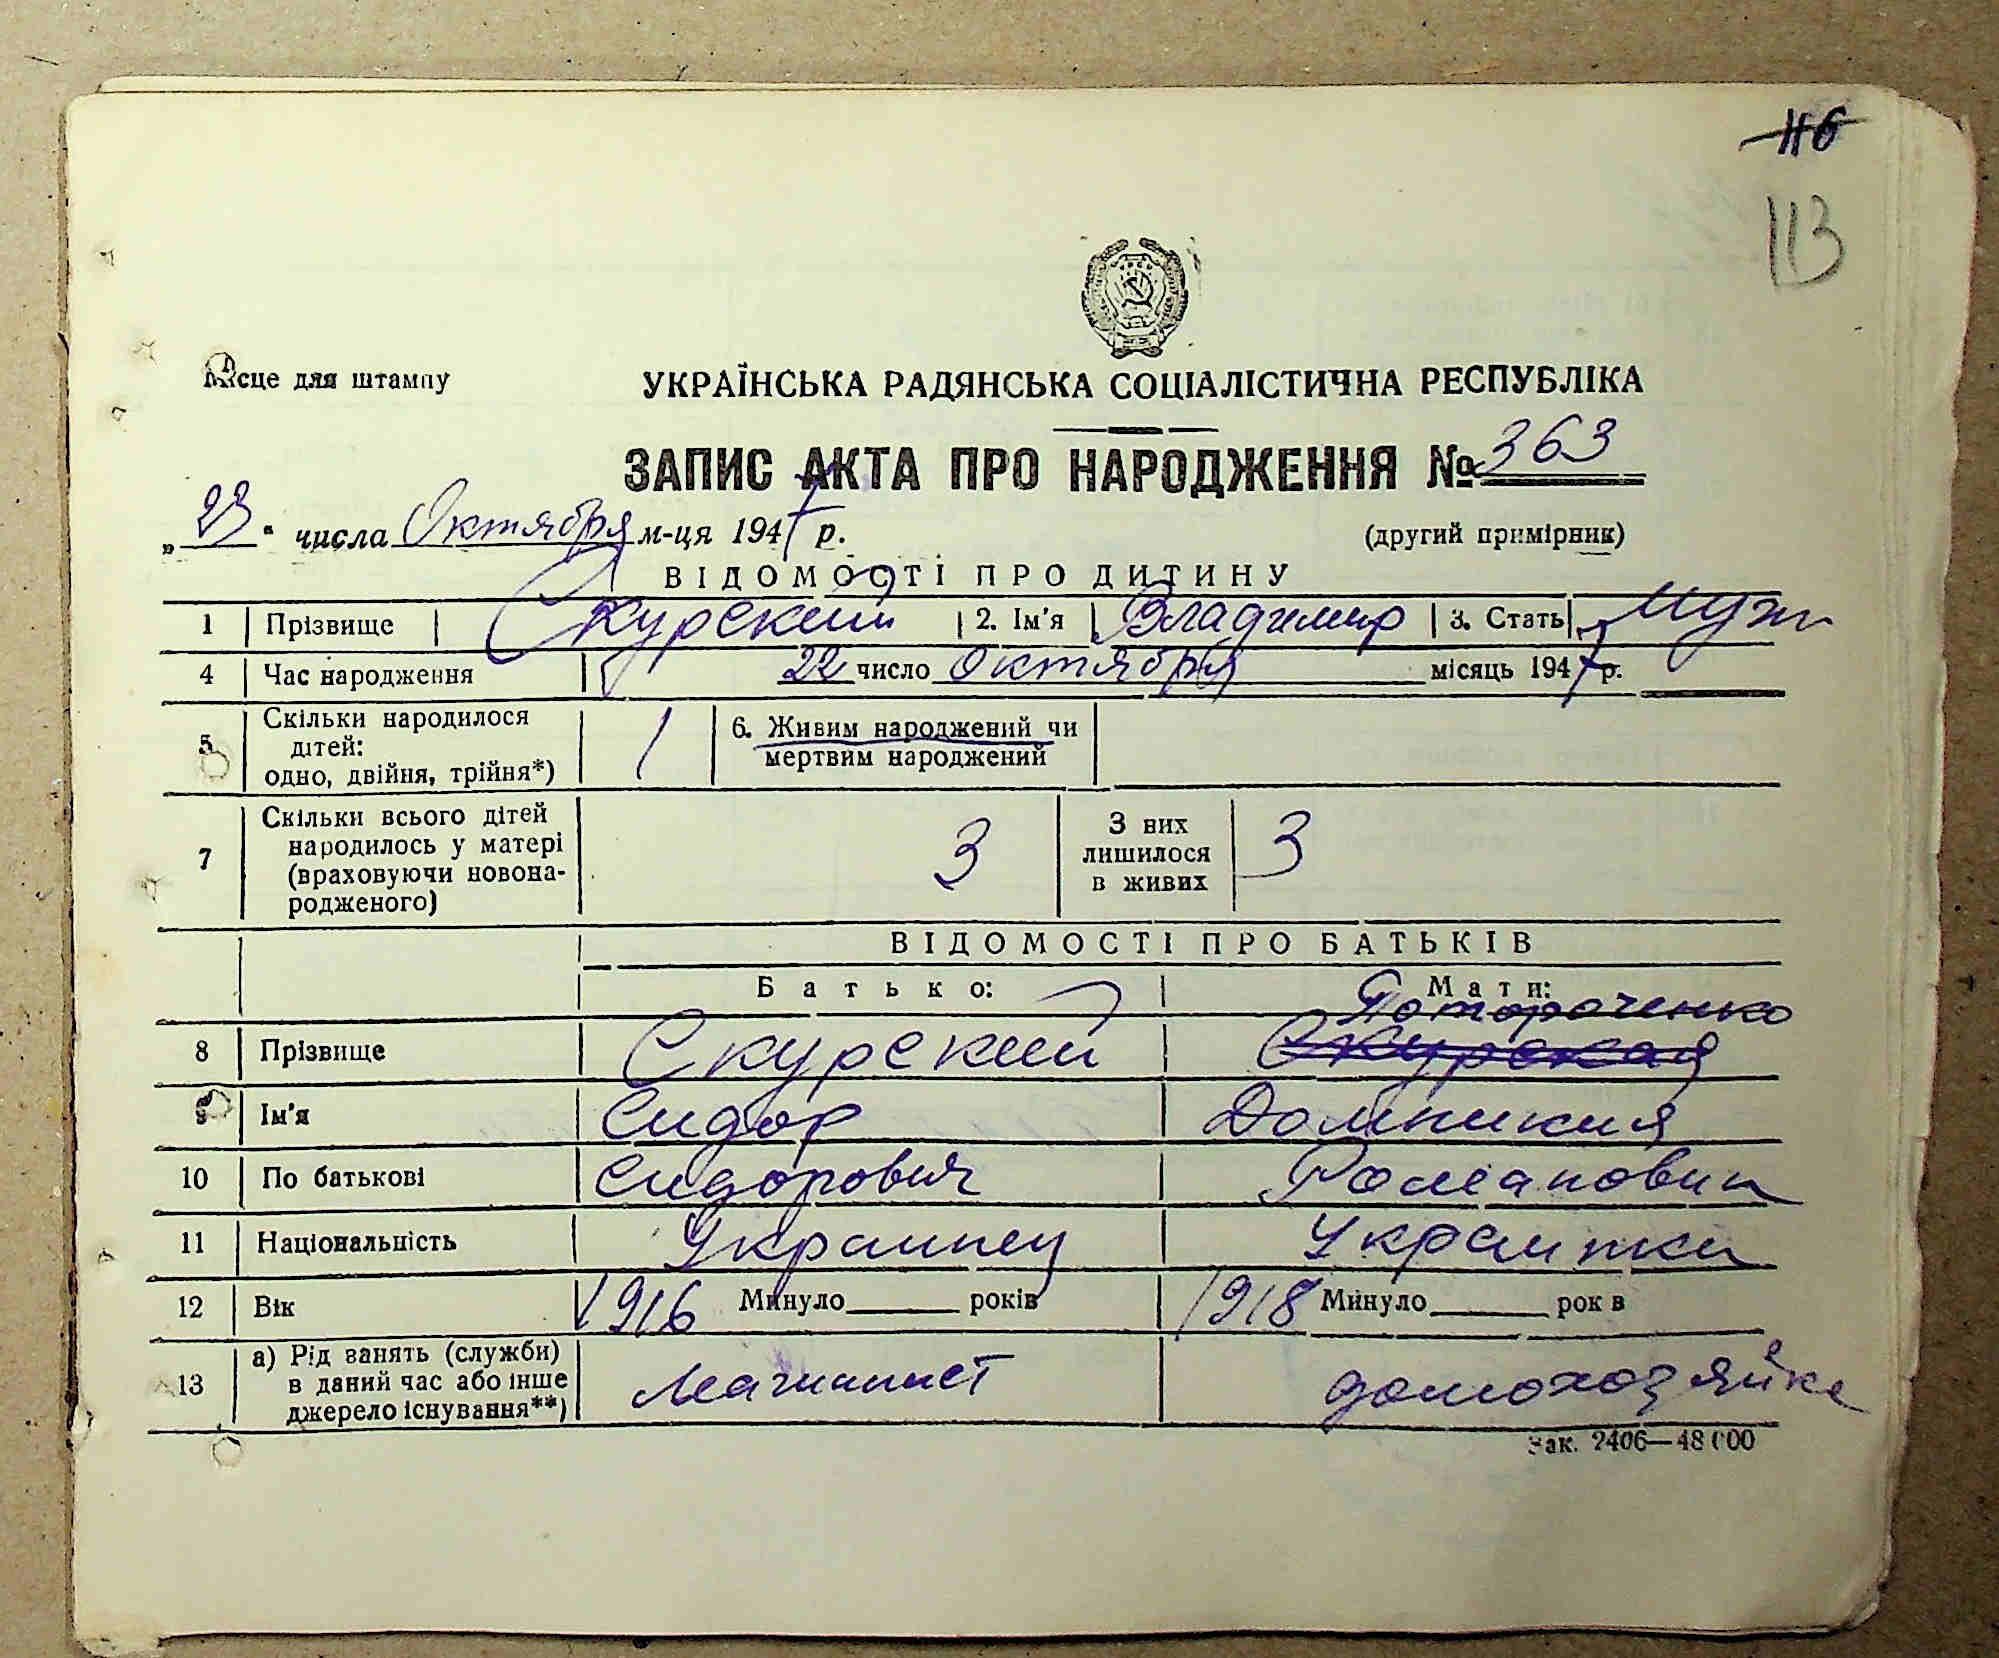 116
113
Місце для штампу
УКРАЇНСЬКА РАДЯНСЬКА СОЦІАЛІСТИЧНА РЕСПУБЛІКА
ЗАПИС АКТА ПРО НАРОДЖЕННЯ № 363
„23" числа Октября м-ця 1947 р. (другий примірник)
ВІДОМОСТІ ПРО ДИТИНУ
1 Прізвище Скурский 2. Ім'я Владимир 3. Стать муж
4 Час народження 22 число Октября місяць 1947 р.
5 Скільки народилося дітей: одно, двійня, трійня*) 1 6. Живим народжений чи мертвим народжений
7 Скільки всього дітей народилось у матері (враховуючи новонародженого) 3 З них лишилося в живих 3
ВІДОМОСТІ ПРО БАТЬКІВ
Батько: Мати:
Потороченко
8 Прізвище Скурский Скурская
9 Ім'я Сидор Домникия
10 По батькові Сидорович Романовна
11 Національність Украинец Украинка
12 Вік 1916 Минуло років 1918 Минуло рок в
13 а) Рід занять (служби) в даний час або інше джерело існування**) Машинист домохозяйка
Зак. 2406—48000